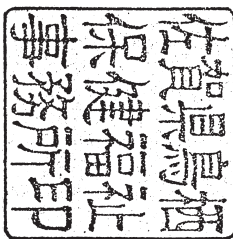 佐賀県鳥栖
保健福祉
事務所印